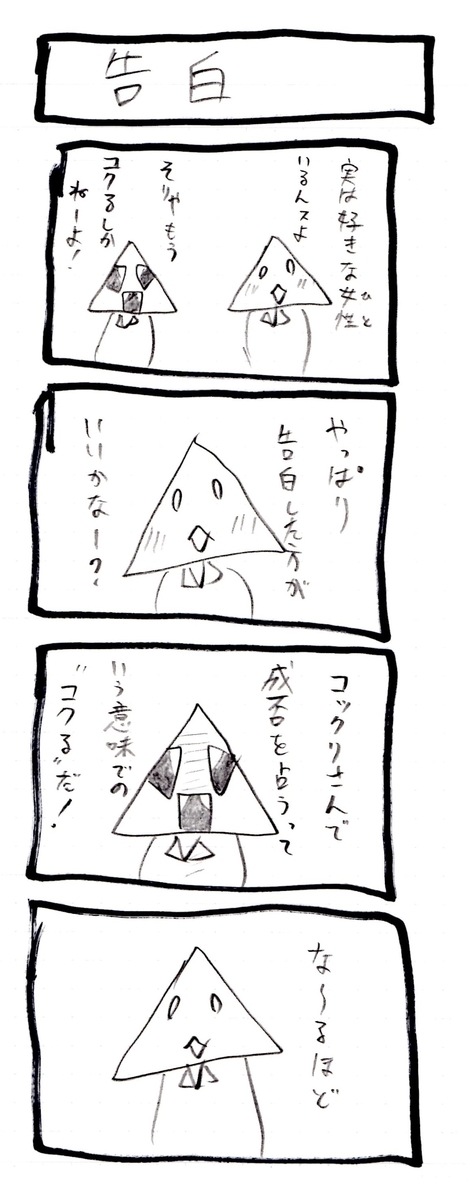 告白
実は好きな女性
ひと
いるんスよ
そりゃもう
コクるしか
ねーよ！
やっぱり
告白した方が
いいかなー？
コックリさんで
成否を占うって
いう意味での
“コクる”だ！
な〜るほど